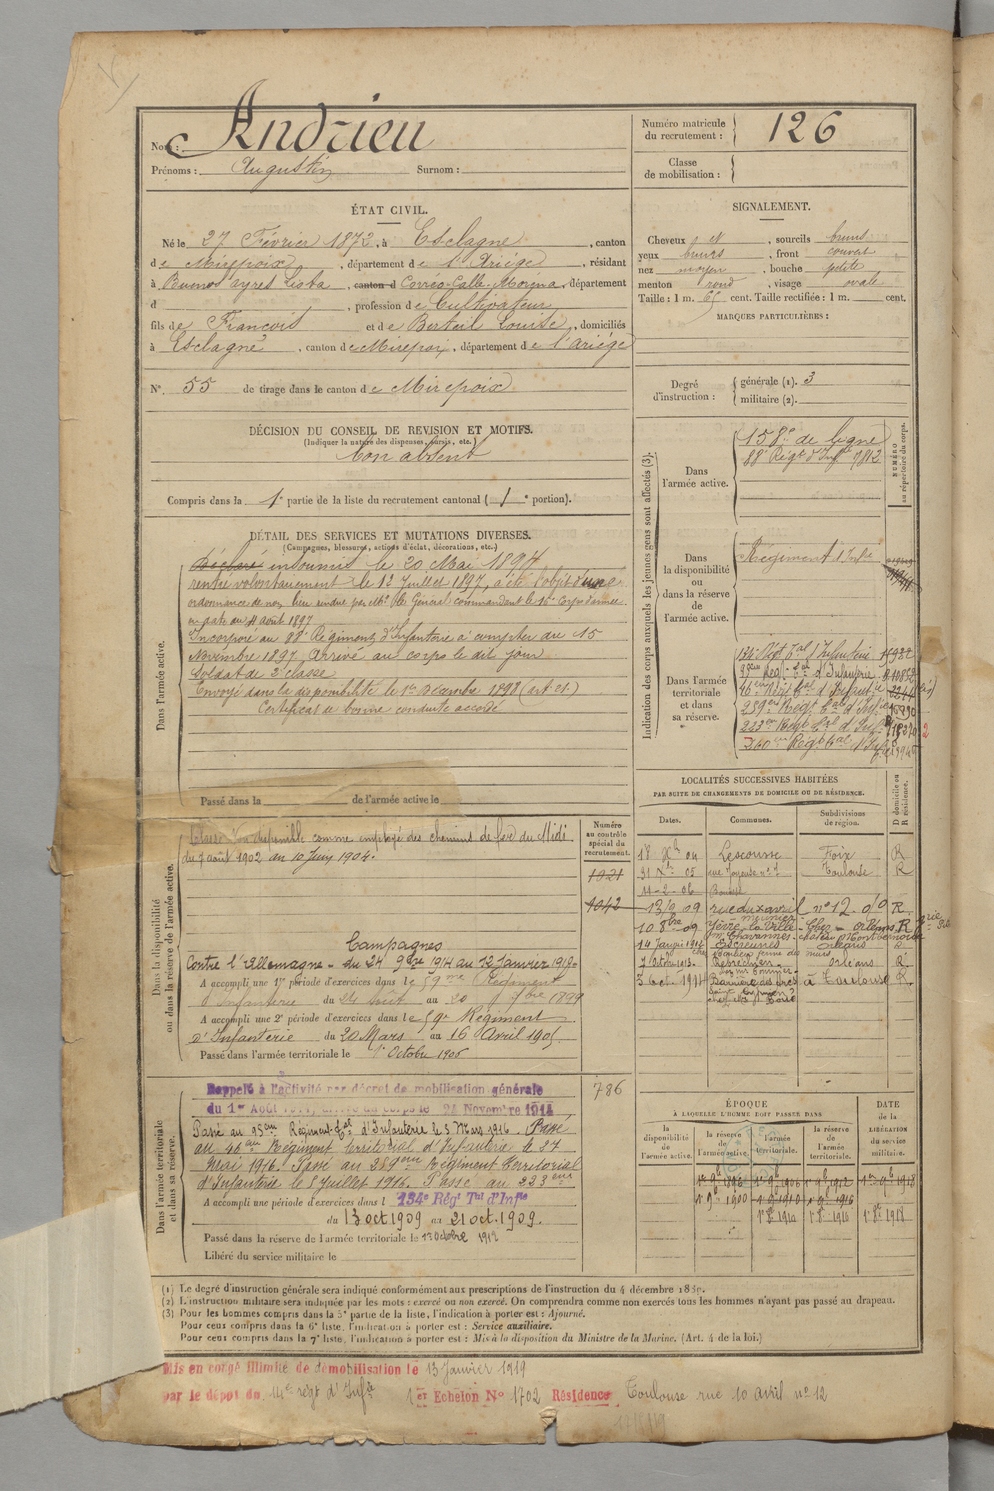 Nom : Andrieu
Prénoms : Augustin Surnom :
Numéro matricule du recrutement : 126
Classe de mobilisation :
ÉTAT CIVIL.
Né le 27 Février 1872, à Esclagne, canton
de Mirepoix, département de l'Ariège, résidant
à Buenos ayres Lisba, canton d Corréo Calle Moréna, département
d , profession de Cultivateur
fils de François et de Berteil Louise, domiciliés
à Esclagne, canton de Mirepoix, département de l'ariége
N°. 55 de tirage dans le canton de Mirepoix
DÉCISION DU CONSEIL DE REVISION ET MOTIFS.
(Indiquer la nature des dispenses, sursis, etc.)
bon absent
Compris dans la 1e partie de la liste du recrutement cantonal ( 1 e portion).
SIGNALEMENT.
Cheveux et , sourcils bruns
yeux bruns , front couvert
nez moyen , bouche petite
menton rond , visage ovale
Taille : 1 m. 65 cent. Taille rectifiée : 1 m. cent.
MARQUES PARTICULIÈRES :
Degré d'instruction : générale (1). 3
militaire (2).
DÉTAIL DES SERVICES ET MUTATIONS DIVERSES.
(Campagnes, blessures, actions d'éclat, décorations, etc.)
Dans l'armée active.
Déclaré insoumis le 20 Mai 1894
rentré volontairement le 12 Juillet 1897, a été l'objet d'une
ordonnance de non lieu rendue par Mr le Général commandant le 16e Corps d'armée
en date du 4 août 1897
Incorporé au 88e Régiment d'Infanterie à compter du 15
Novembre 1897 Arrivé au corps le dit jour
Soldat de 2e classe
Envoyé dans la disponibilité le 1er Décembre 1898 (art 21.)
Certificat de bonne conduite accordé
Passé dans la de l'armée active le
Indication des corps auxquels les jeunes gens sont affectés (3).
NUMÉRO au répertoire du corps.
Dans l'armée active.
158e de ligne
88e Régt d'Infie 7812
Dans la disponibilité ou dans la réserve de l'armée active.
Régiment d'Infie
Dans l'armée territoriale et dans sa réserve.
134e Régt Tal d'Infanterie
95eme Rég. Tal d'Infanterie
46eme Régt Tal d'Infanterie
259eme Régt Tal d'Infie
223eme Regt Tal d'Infie
360eme Régt Tal d'Infie
LOCALITÉS SUCCESSIVES HABITÉES
PAR SUITE DE CHANGEMENTS DE DOMICILE OU DE RÉSIDENCE.
Dates. Communes. Subdivisions de région. D domicile ou R résidence.
18 Xbre 04 Lescousse Foix R
31 Xbre 05 rue Joyeuse Toulouse R
14-2-06
13/9 09 rue du x avril n° 12 d° R
10 8bre 09 Yèvre la Ville Orléans R
14 Janvier 1912 Escrennes
7 Octobre 1913 Orléans R
3 Oct 1914 à Toulouse R
Dans la disponibilité ou dans la réserve de l'armée active.
Numéro au contrôle spécial du recrutement.
Classé non disponible comme employé des chemins de fer du Midi
du 9 août 1902 au 10 Juin 1904.
1921
1042
Campagnes
Contre l'Allemagne - du 24 9bre 1914 au 12 Janvier 1919
A accompli une 1re période d'exercices dans le 59me Régiment
d'Infanterie du 24 Août au 20 7bre 1899
A accompli une 2e période d'exercices dans le 59e Régiment
d'Infanterie du 20 Mars au 16 Avril 1905.
Passé dans l'armée territoriale le 1er Octobre 1906
Dans l'armée territoriale et dans sa réserve.
Rappelé à l'activité par décret de mobilisation générale 786
du 1er Août 1914, arrivé au corps le 24 Novembre 1914
Passé au 95eme Régiment Tal d'Infanterie le 5 Mars 1916. Passé
au 46eme Régiment territorial d'Infanterie le 27
Mai 1916. Passé au 259eme Régiment Territorial
d'Infanterie le 8 Juillet 1916. Passé au 223eme
A accompli une période d'exercices dans l 134e Régt Tal d'Infie
du 13 oct 1909 au 21 oct. 1909.
Passé dans la réserve de l'armée territoriale le 1er Octobre 1912
Libéré du service militaire le
ÉPOQUE
À LAQUELLE L'HOMME DOIT PASSER DANS
DATE de la LIBÉRATION du service militaire.
la disponibilité de l'armée active. la réserve de l'armée active. l'armée territoriale. la réserve de l'armée territoriale.
1er 9b 1896 1er 9b 1906 1er 9b 1912 1er 9b 1918
1er 9b 1900 1er 9b 1910 1er 9b 1916
1er 8e 1910 1er 8e 1916 1er 8e 1918
(1) Le degré d'instruction générale sera indiqué conformément aux prescriptions de l'instruction du 4 décembre 1889.
(2) L'instruction militaire sera indiquée par les mots : exercé ou non exercé. On comprendra comme non exercés tous les hommes n'ayant pas passé au drapeau.
(3) Pour les hommes compris dans la 5e partie de la liste, l'indication à porter est : Ajourné.
Pour ceux compris dans la 6e liste, l'indication à porter est : Service auxiliaire.
Pour ceux compris dans la 7e liste, l'indication à porter est : Mis à la disposition du Ministre de la Marine. (Art. 4 de la loi.)
Mis en congé illimité de démobilisation le 13 Janvier 1919
par le dépôt du 14e régt d'Infie 1er Echelon N° 1702 Résidence Toulouse rue 10 avril n° 12